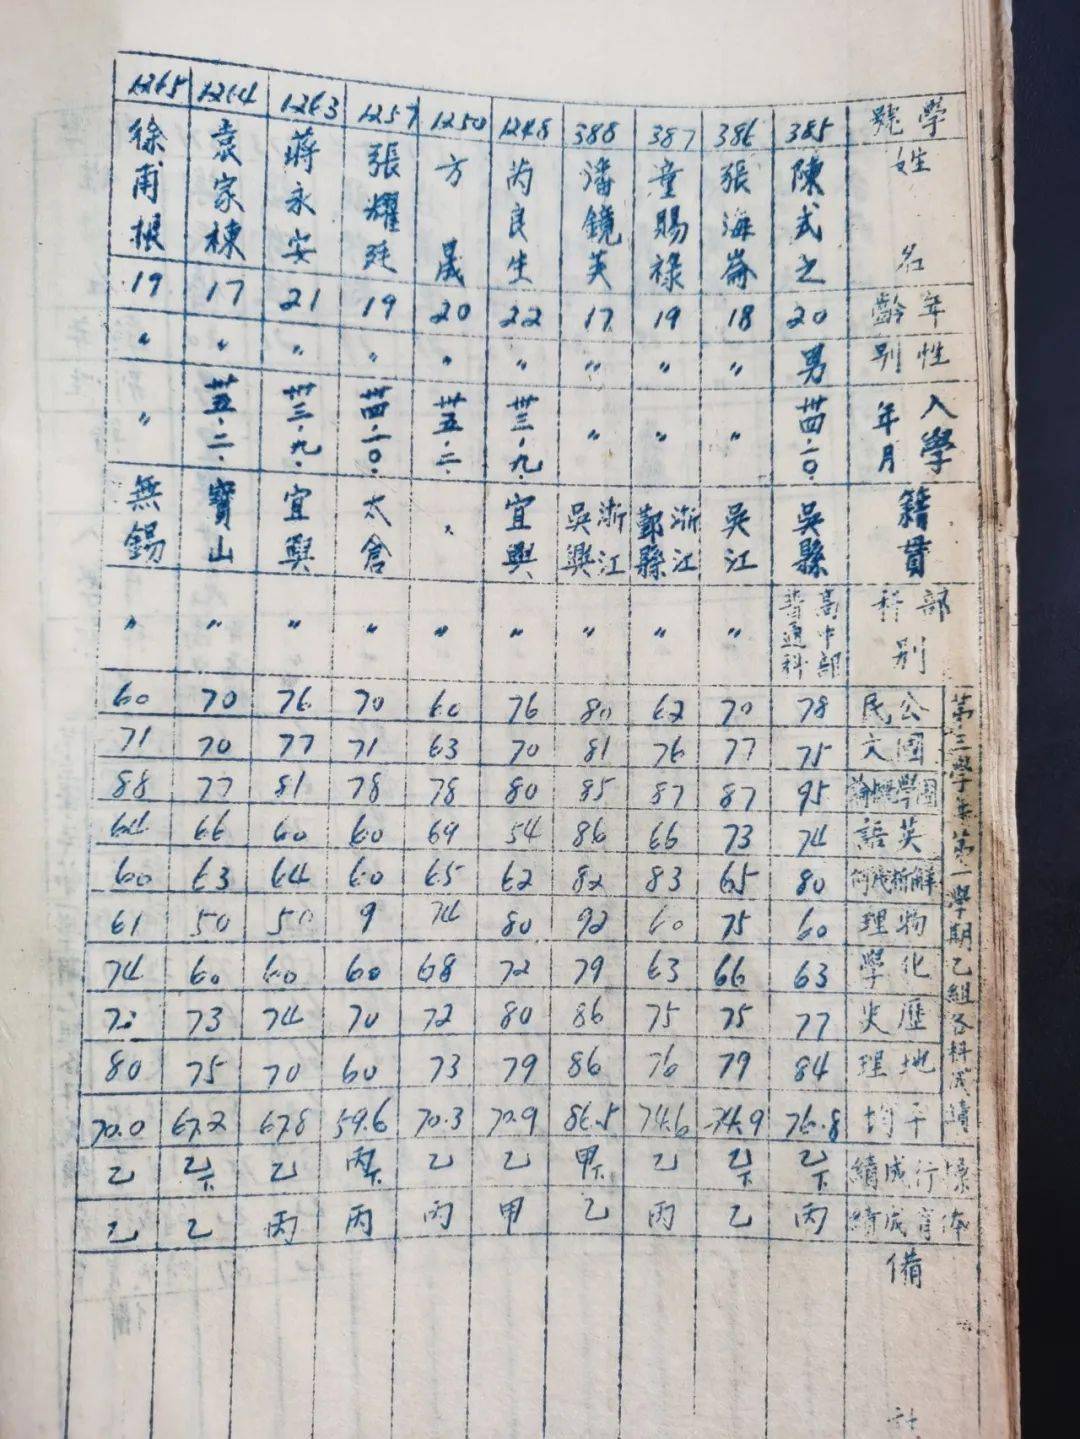 學號 姓名 年齡 性別 入學年月 籍貫 部科別 第三學年第一學期乙組各科成績 公民 國文 國學概論 英語 解析幾何 物理 化學 歷史 地理 平均 操行成績 体育成績 備
385 陳式之 20 男 卅四.一〇. 吳縣 高中部普通科 78 75 95 74 80 60 63 77 84 76.8 乙下 丙
386 張海崙 18 〃 〃 吳江 〃 70 77 87 73 65 75 66 75 79 74.9 乙下 乙
387 童賜祿 19 〃 〃 浙江鄞縣 〃 62 76 87 66 83 60 63 75 76 74.6 乙 丙
388 潘鏡英 17 〃 〃 浙江吳興 〃 80 81 85 86 82 92 79 86 86 86.5 甲下 乙
1248 芮良生 22 〃 卅三.九. 宜興 〃 76 70 80 54 62 80 72 80 79 70.9 乙 甲
1250 方晟 20 〃 卅五.二. 〃 〃 60 63 78 69 65 74 68 72 73 70.3 乙 丙
1257 張耀廷 19 〃 卅四.一〇. 太倉 〃 70 71 78 60 60 9 60 70 60 59.6 丙下 丙
1263 蔣永安 21 〃 卅三.九. 宜興 〃 76 77 81 60 64 50 60 74 70 67.8 乙 丙
1264 袁家棟 17 〃 卅五.二. 寶山 〃 70 70 77 66 63 50 60 73 75 67.2 乙下 乙
1265 徐甫根 19 〃 〃 無錫 〃 60 71 88 64 60 61 74 80 70.0 乙 乙